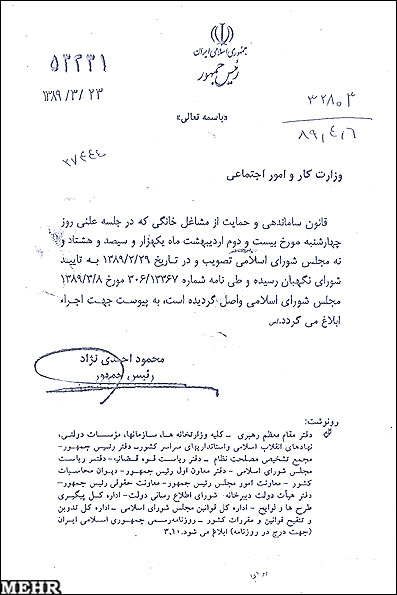 جمهوری اسلامی ایران
رئیس جمهور
۵۳۲۳۱
۱۳۸۹/۳/۲۳
۳۲۸۰۳
۸۹/۴/۶
«باسمه تعالی»
۲۷۴۴۴
وزارت کار و امور اجتماعی
قانون ساماندهی و حمایت از مشاغل خانگی که در جلسه علنی روز
چهارشنبه مورخ بیست و دوم اردیبهشت ماه یکهزار و سیصد و هشتاد و
نه مجلس شورای اسلامی تصویب و در تاریخ ۱۳۸۹/۲/۲۹ به تایید
شورای نگهبان رسیده و طی نامه شماره ۳۰۶/۱۳۳۶۷ مورخ ۱۳۸۹/۳/۸
مجلس شورای اسلامی واصل گردیده است، به پیوست جهت اجراء
ابلاغ می گردد.
محمود احمدی نژاد
رئیس جمهور
رونوشت:
دفتر مقام معظم رهبری - کلیه وزارتخانه ها، سازمانها، مؤسسات دولتی،
نهادهای انقلاب اسلامی و استانداریهای سراسر کشور- دفتر رئیس جمهور-
مجمع تشخیص مصلحت نظام - دفتر ریاست قوه قضائیه- دفتر ریاست
مجلس شورای اسلامی - دفتر معاون اول رئیس جمهور- دیوان محاسبات
کشور - معاونت امور مجلس رئیس جمهور- معاونت حقوقی رئیس جمهور-
دفتر هیأت دولت دبیرخانه شورای اطلاع رسانی دولت- اداره کل پیگیری
طرح ها و لوایح - اداره کل قوانین مجلس شورای اسلامی - اداره کل تدوین
و تنقیح قوانین و مقررات کشور - روزنامه رسمی جمهوری اسلامی ایران
(جهت درج در روزنامه) ابلاغ می شود. ۳،۱۰
MEHR